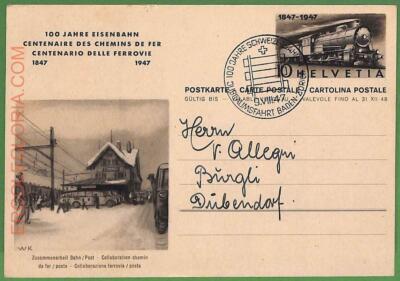 100 JAHRE EISENBAHN
CENTENAIRE DES CHEMINS DE FER
CENTENARIO DELLE FERROVIE
1847 1947
1847-1947
10 HELVETIA
POSTKARTE CARTE POSTALE CARTOLINA POSTALE
GÜLTIG BIS VALEVOLE FINO AL 31. XII. 48
100 JAHRE SCHWEIZ.
JUBILÄUMSFAHRT BADEN
9.VIII.47
Herrn
v. Allegri
Bürgli
Dübendorf
WK
Zusammenarbeit Bahn / Post - Collaboration chemin
de fer / poste - Collaborazione ferrovia / posta
ERSOLEGLORIA.COM